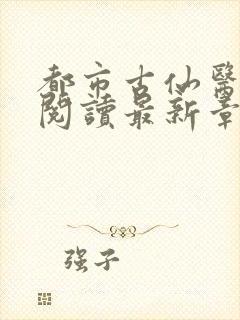 都市古仙醫
閱讀最新章
强子